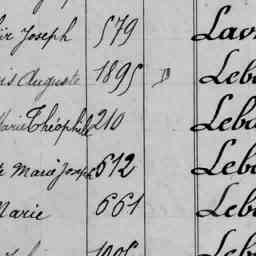 Joseph 579 Lav
Auguste 1895 D Leb
Marie Théophile 210 Leba
Marie Joseph 612 Leba
Marie 661 Leba